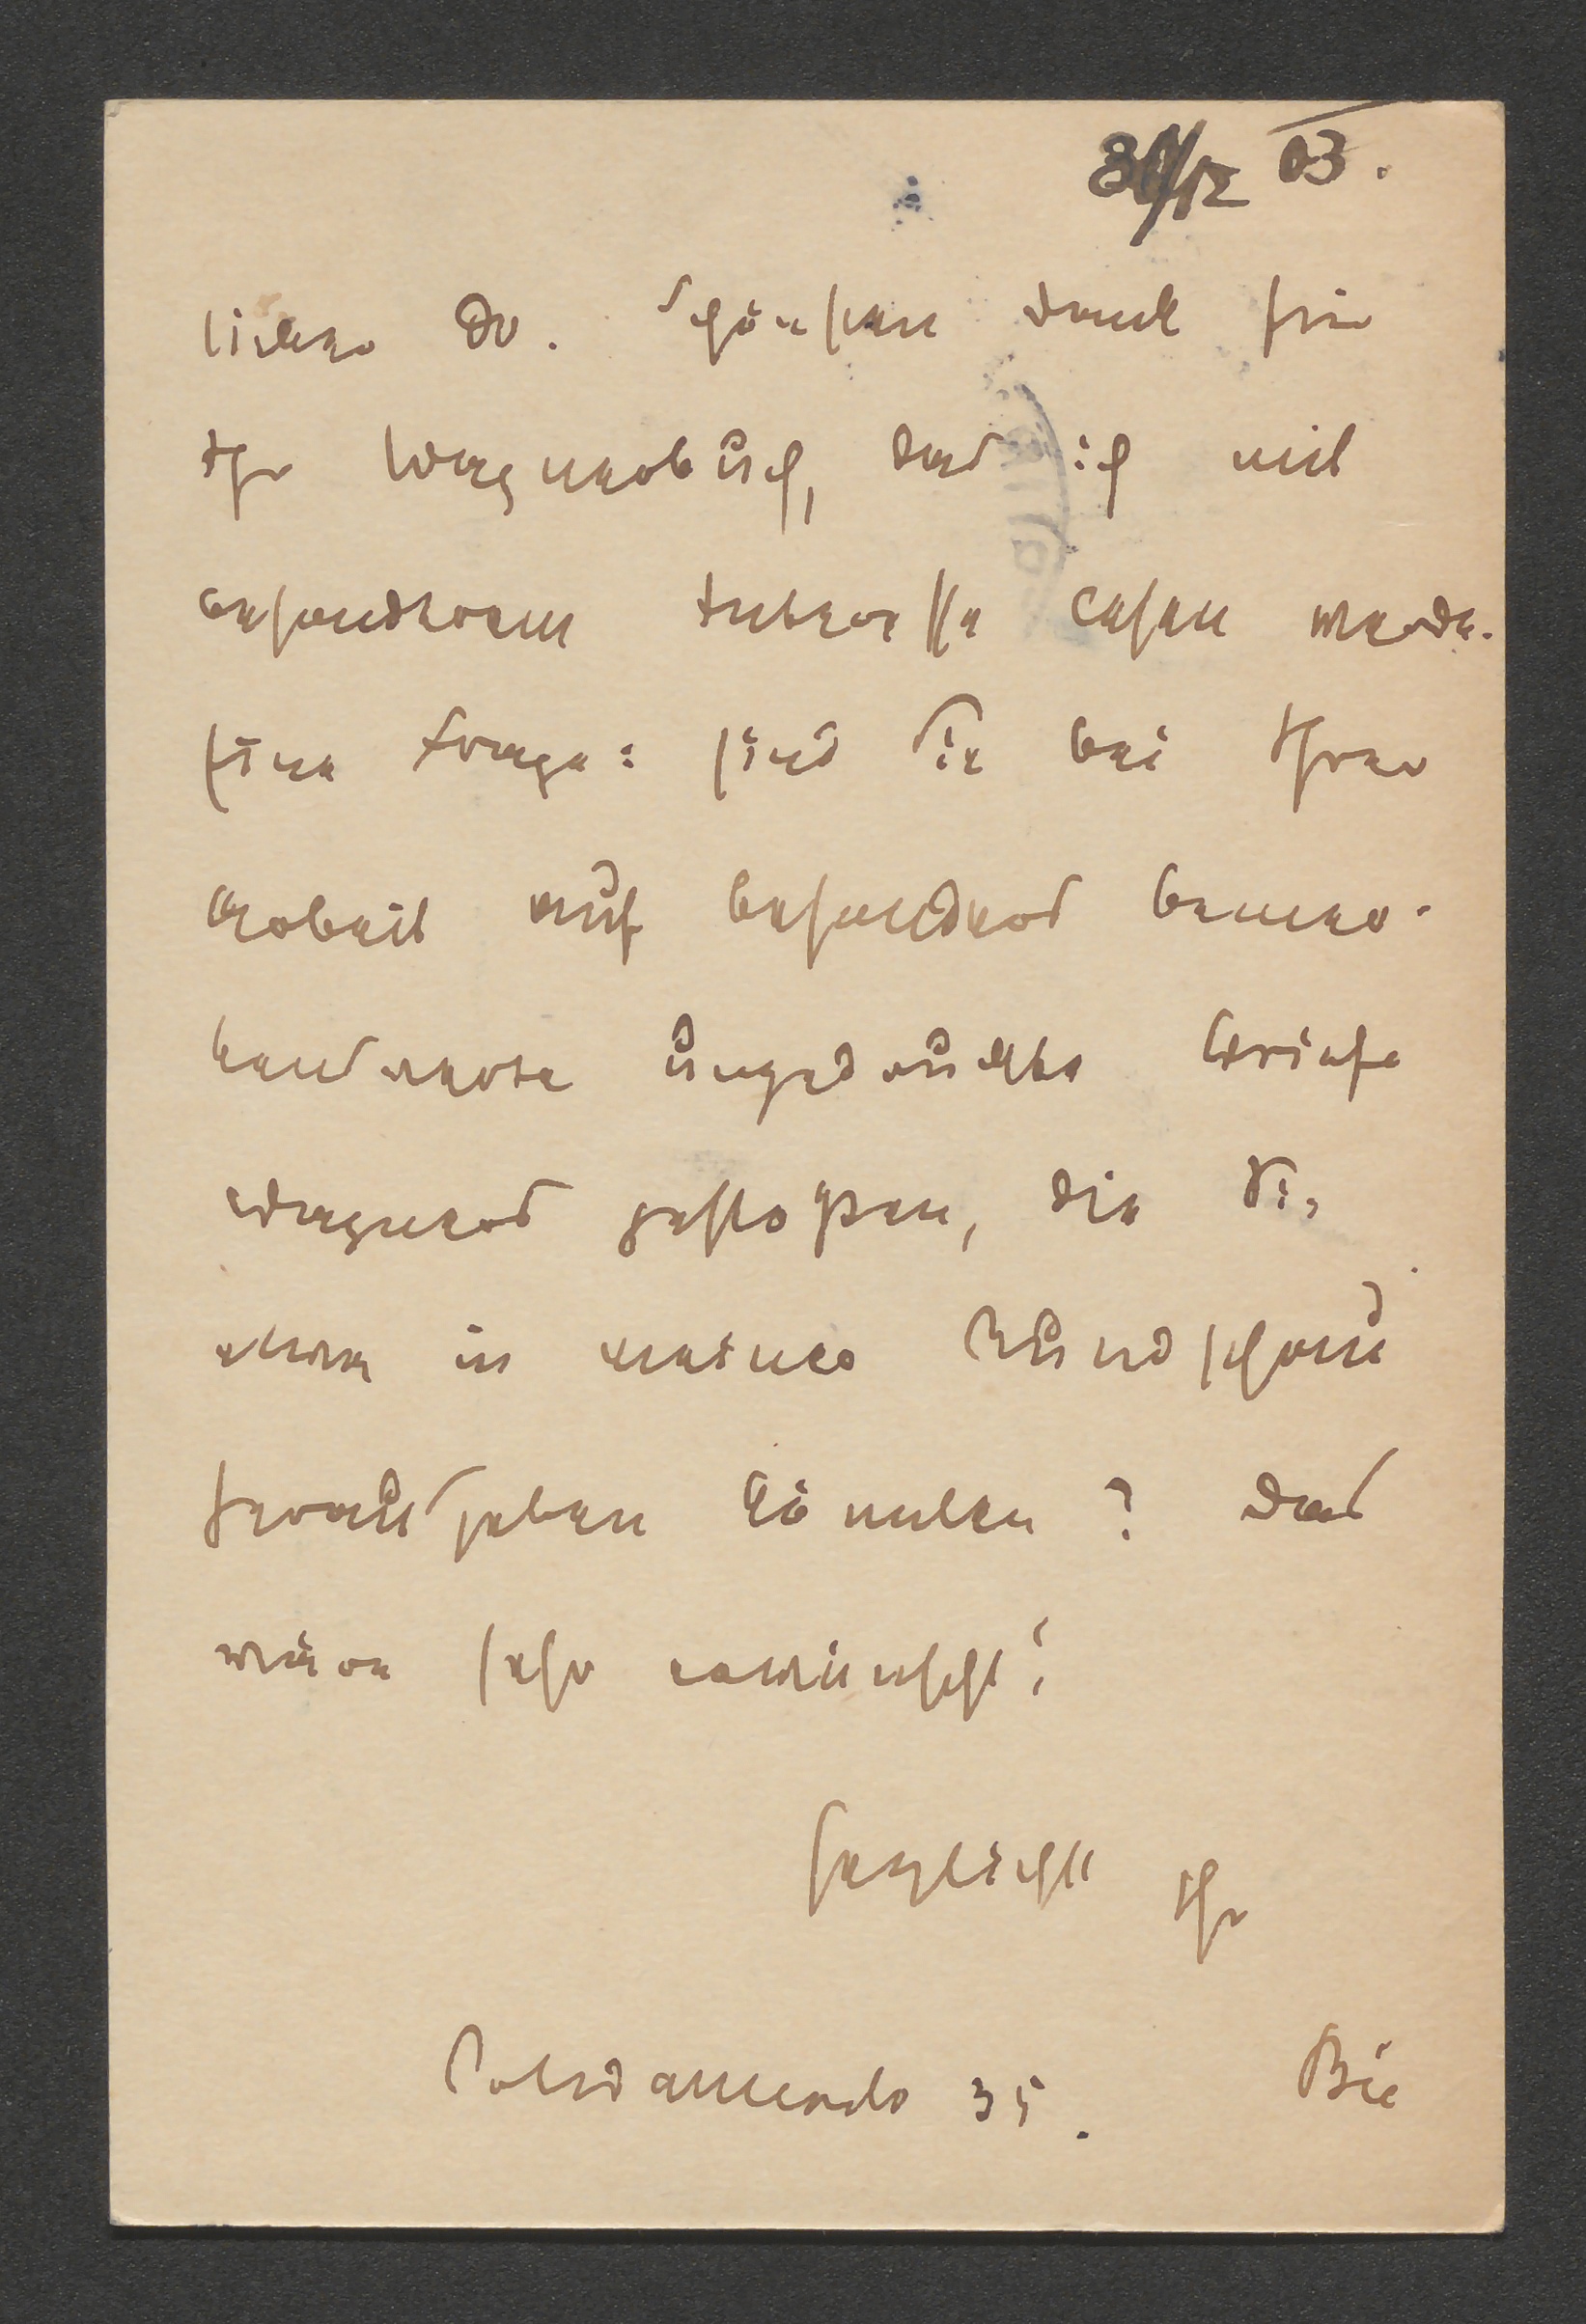 30/12 03.
lieber Dr. Schönsten dank für
Ihr Wagnerbuch, das ich mit
besonderem Interesse lesen werde.
Eine Frage: sind Sie bei Ihrer
Arbeit auf besonders bemer-
kenswerte ungedruckte Briefe
Wagners gestoßen, die Sie
etwa in meiner Rundschau
herausgeben könnten? Das
wäre sehr erwünscht!
herzlichst Ihr
Potsdamerstr 35. Bie